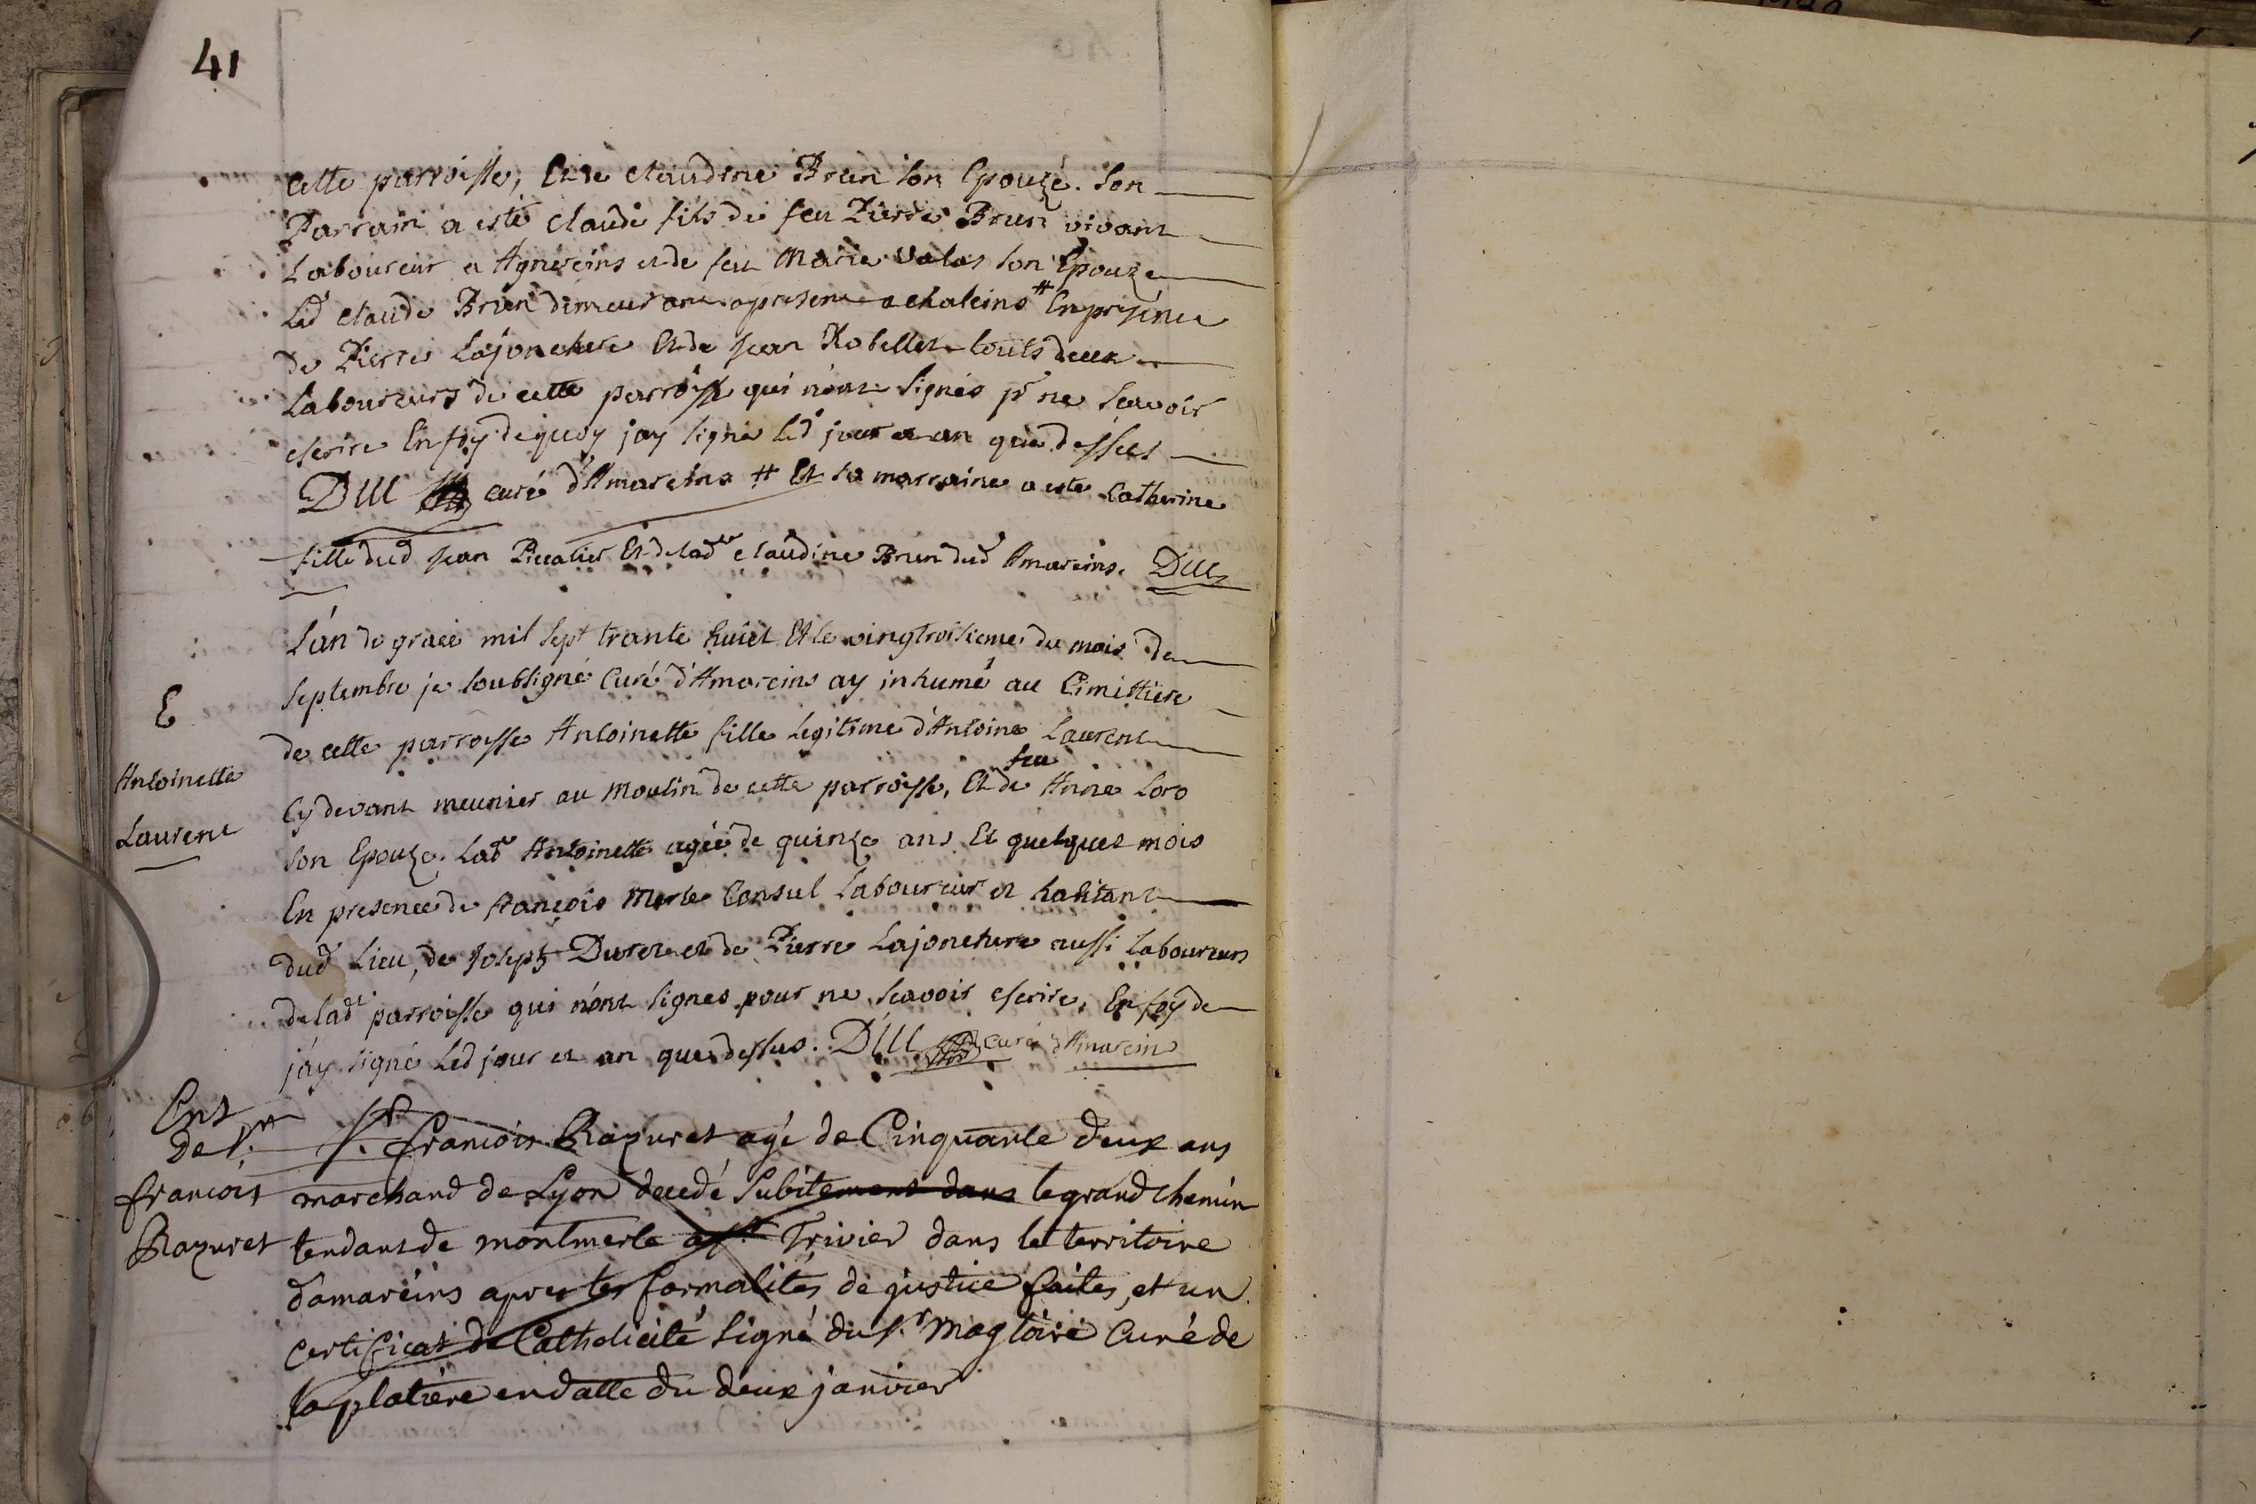 41
cette parroisse, Et de claudine Brun son Epouze. son
Parrain a esté claude fils de feu Pierre Brun vivant
Laboureur a Agnereins et de feu Marie valos son Epouze
Led claude Brun demeurant apresent a chaleins # En presence
de Pierre Lajonchere Et de Jean Robellet touts deux
Laboureurs de cette parroisse qui n'ont signés pr ne scavoir
escrire En foy de quoy jay signé led jour et an que dessus
Dill curé d'Amareins # Et sa marraine a esté Catherine
fille dud Jean Et de lad.te claudine Brun dud Amareins. Dill
E
Antoinette
Laurent
L'an de grace mil sept trante huict Et le vingtroisieme du mois de
septembre je soubsigné Curé d'Amareins ay inhumé au Cimittiere
de cette parroisse Antoinette fille Legitime d'Antoine Laurent
Cy devant meunier au Moulin de cette parroisse, Et de feu Anne Loro
son Epouze. Lad.e Antoinette agée de quinze ans Et quelques mois
En presence de françois Merle Consul Laboureur et habitant
dud Lieu, de Joseph Duret et de Pierre Lajonchere aussi Laboureurs
de lad.e parroisse qui n'ont signes pour ne scavoir escrire, En foy de
j'ay signé Led jour et an que dessus. Dill curé d'Amareins
Ent
de s.r
francois
Razuret
s.r francois Razuret agé de Cinquante deux ans
marchand de Lyon decedé subitement dans le grand chemin
tendant de montmerle a st Trivier dans le territoire
d'amareins apres les formalités de justice faites, et un
certificat de Catholicité signé du s.r magloire Curé de
la platiere en datte du deux janvier